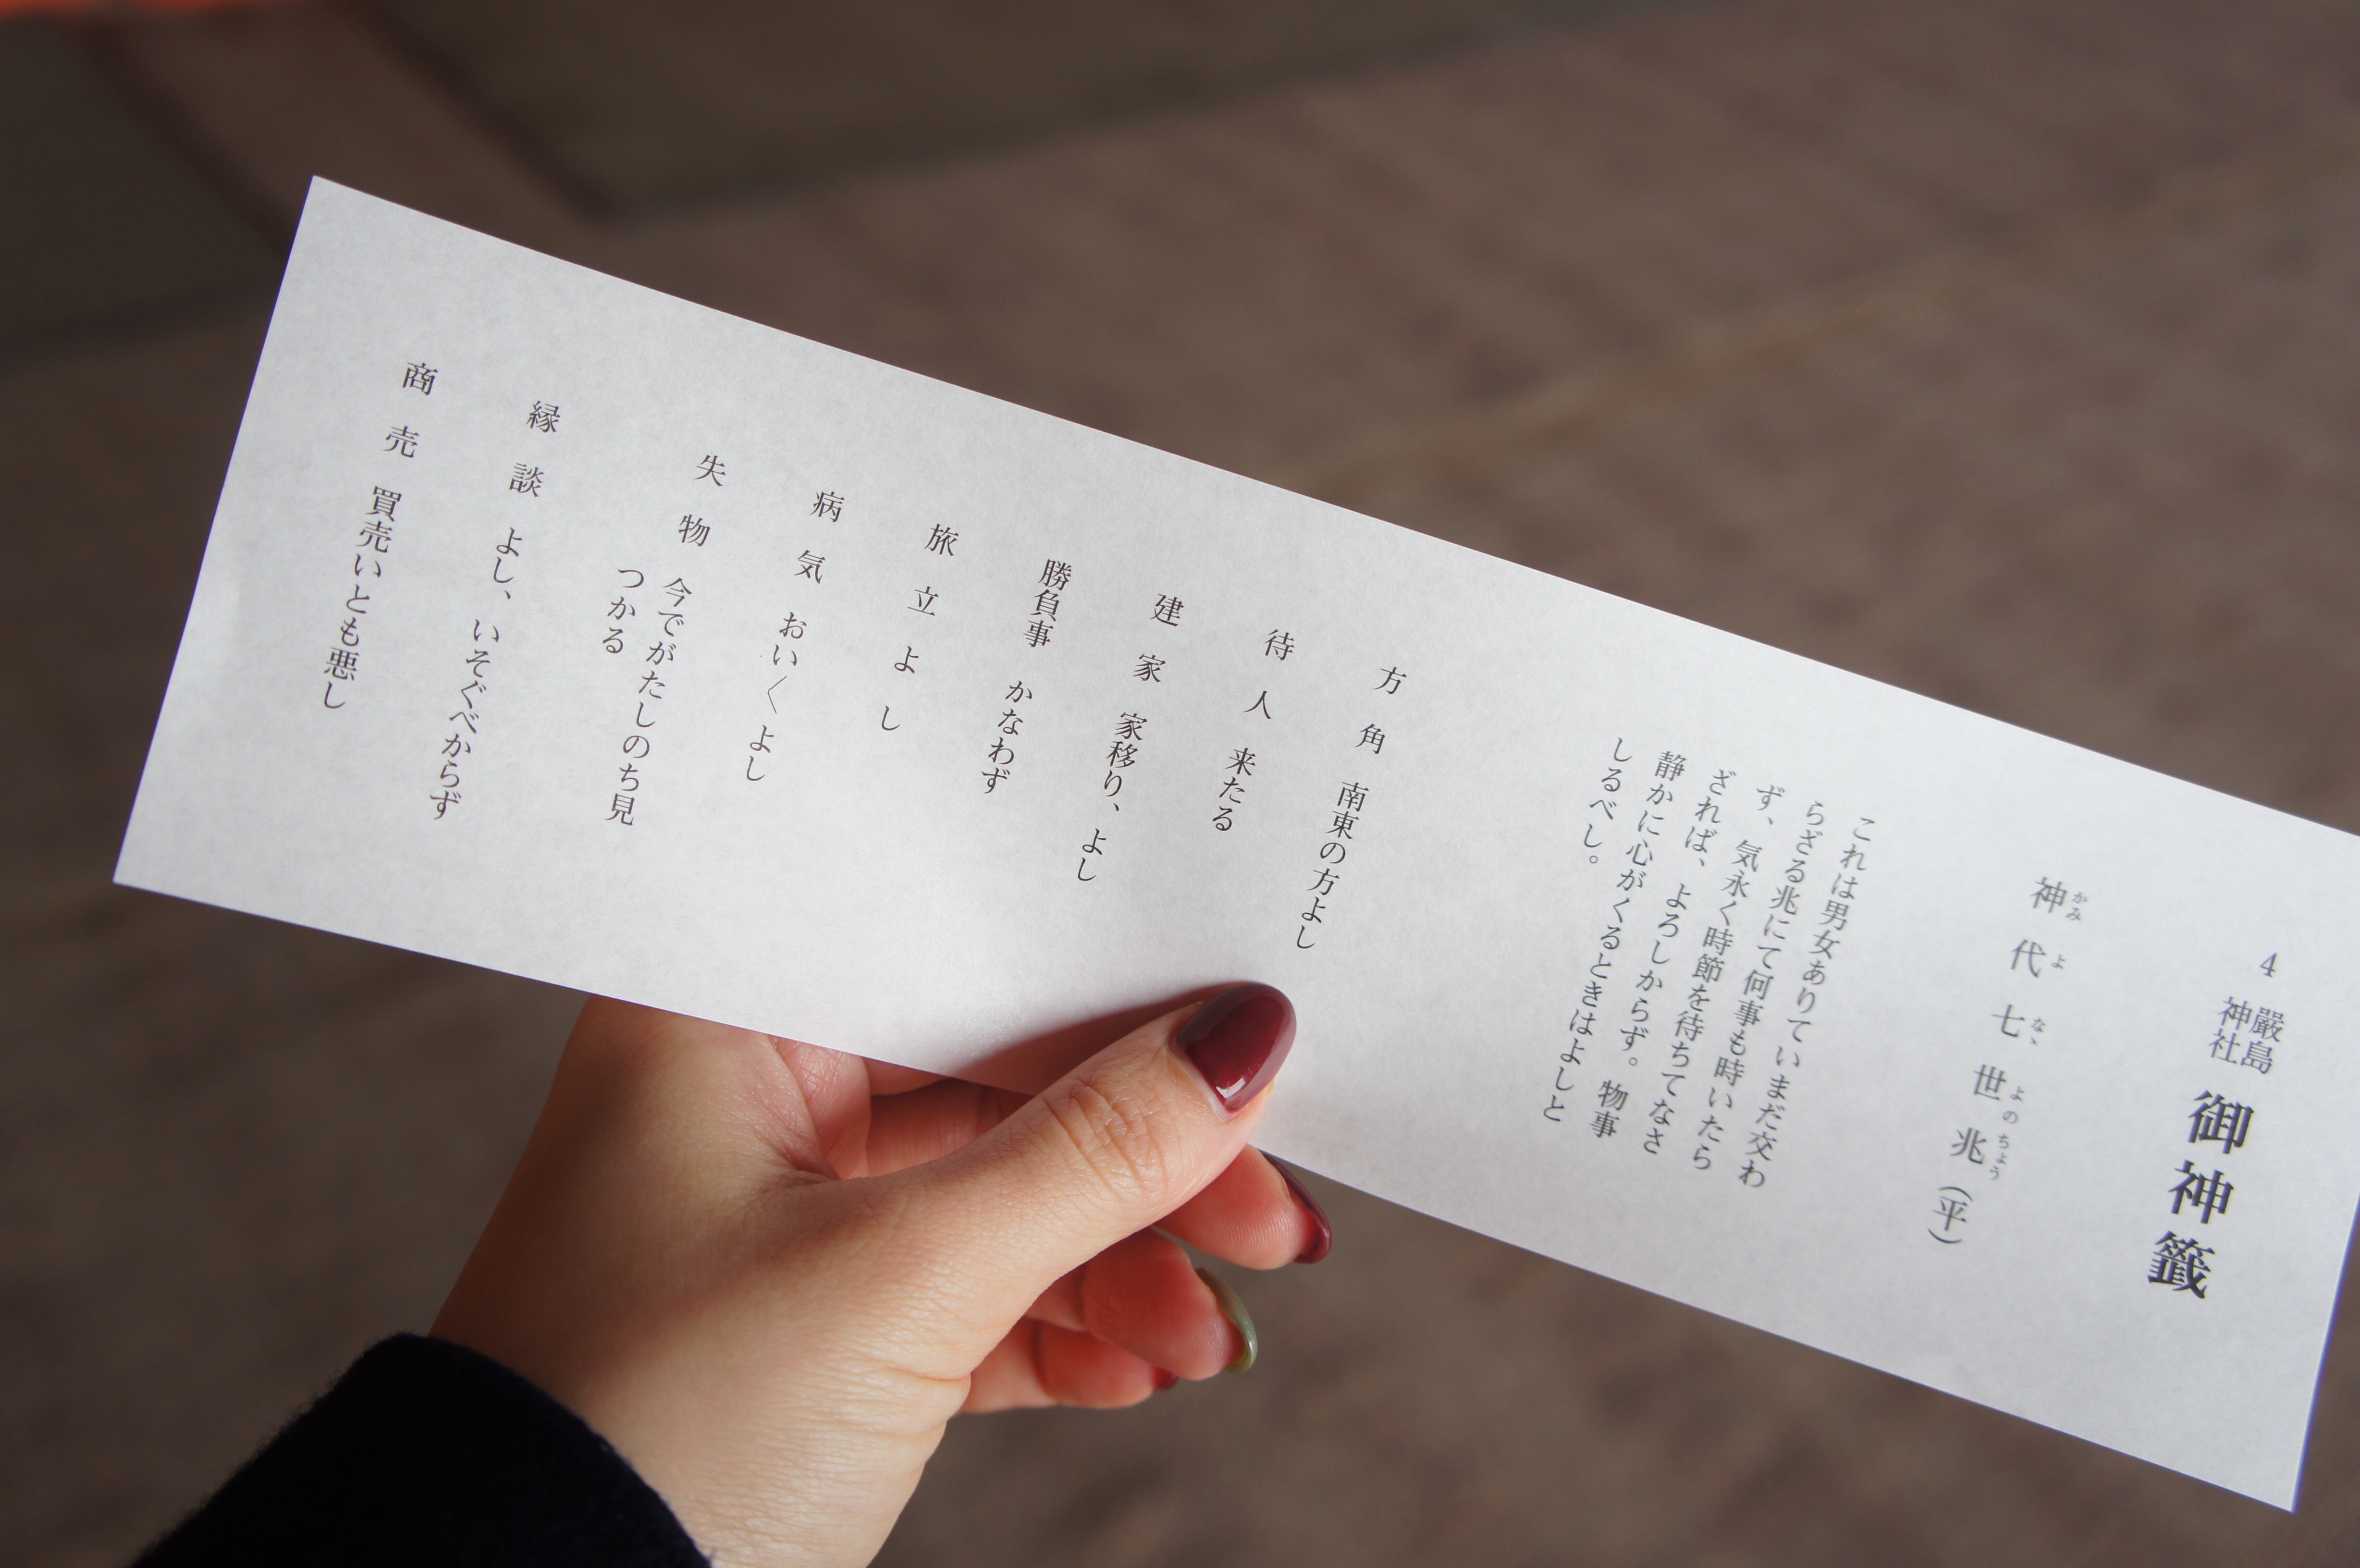 4
嚴島
神社
御神籤
神代七世兆（平）
かみ よ なゝ よの ちょう
これは男女ありていまだ交わ
らざる兆にて何事も時いたら
ず、気永く時節を待ちてなさ
ざれば、よろしからず。物事
静かに心がくるときはよしと
しるべし。
方角 南東の方よし
待人 来たる
建家 家移り、よし
勝負事 かなわず
旅立 よし
病気 おい〱よし
失物 今でがたしのち見
つかる
縁談 よし、いそぐべからず
商売 買売いとも悪し